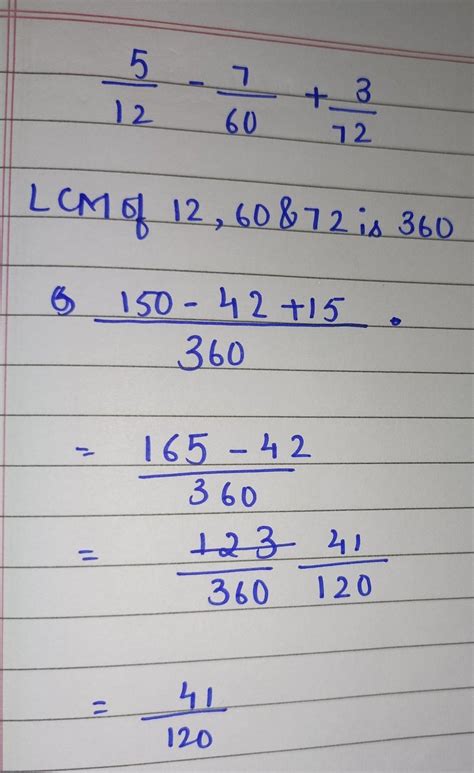 5/12 - 7/60 + 3/72
LCM of 12, 60 & 72 is 360
150 - 42 + 15 / 360 .
= 165 - 42 / 360
= 123/360 41/120
= 41/120